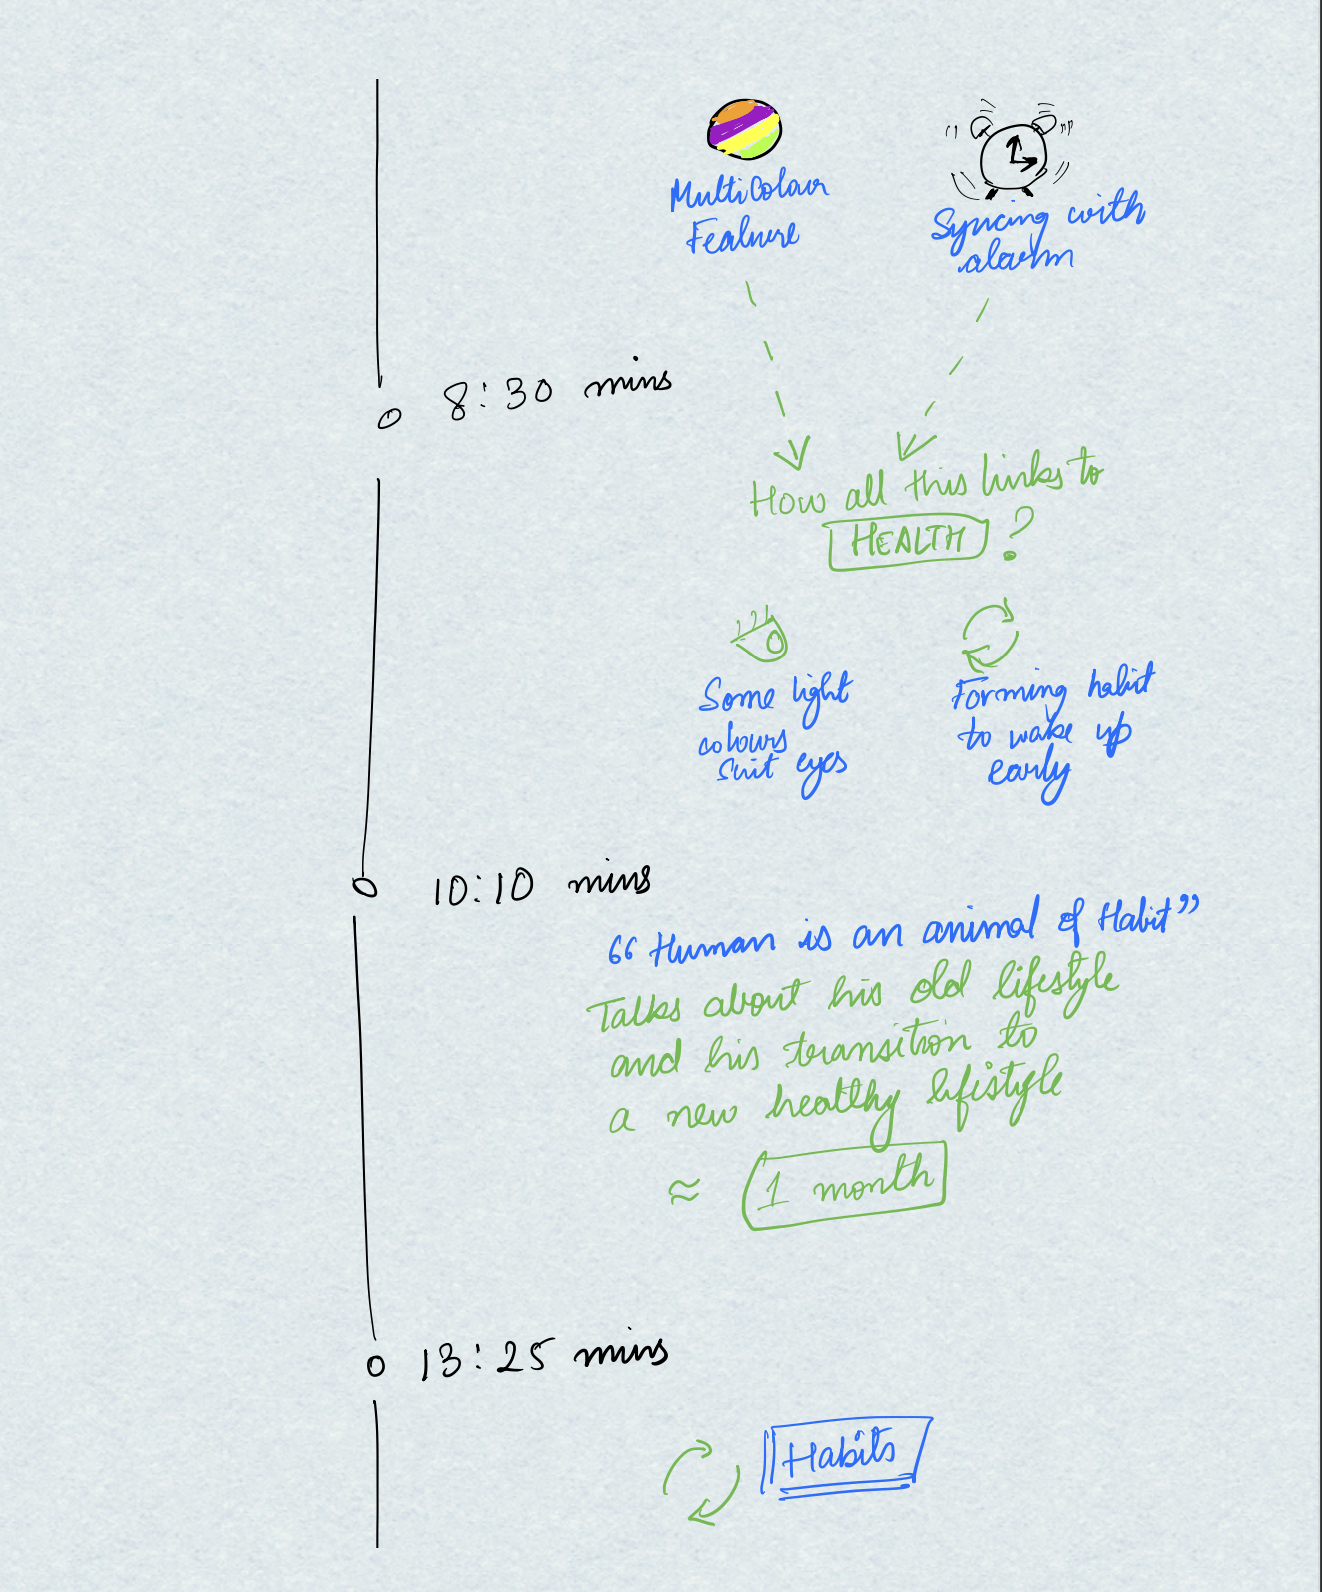 MultiColour
Feature
Syncing with
alarm
8:30 mins
How all this links to
HEALTH ?
Some light
colours
suit eyes
Forming habit
to wake up
early
10:10 mins
“Human is an animal of Habit”
Talks about his old lifestyle
and his transition to
a new healthy lifestyle
≈ 1 month
13:25 mins
Habits